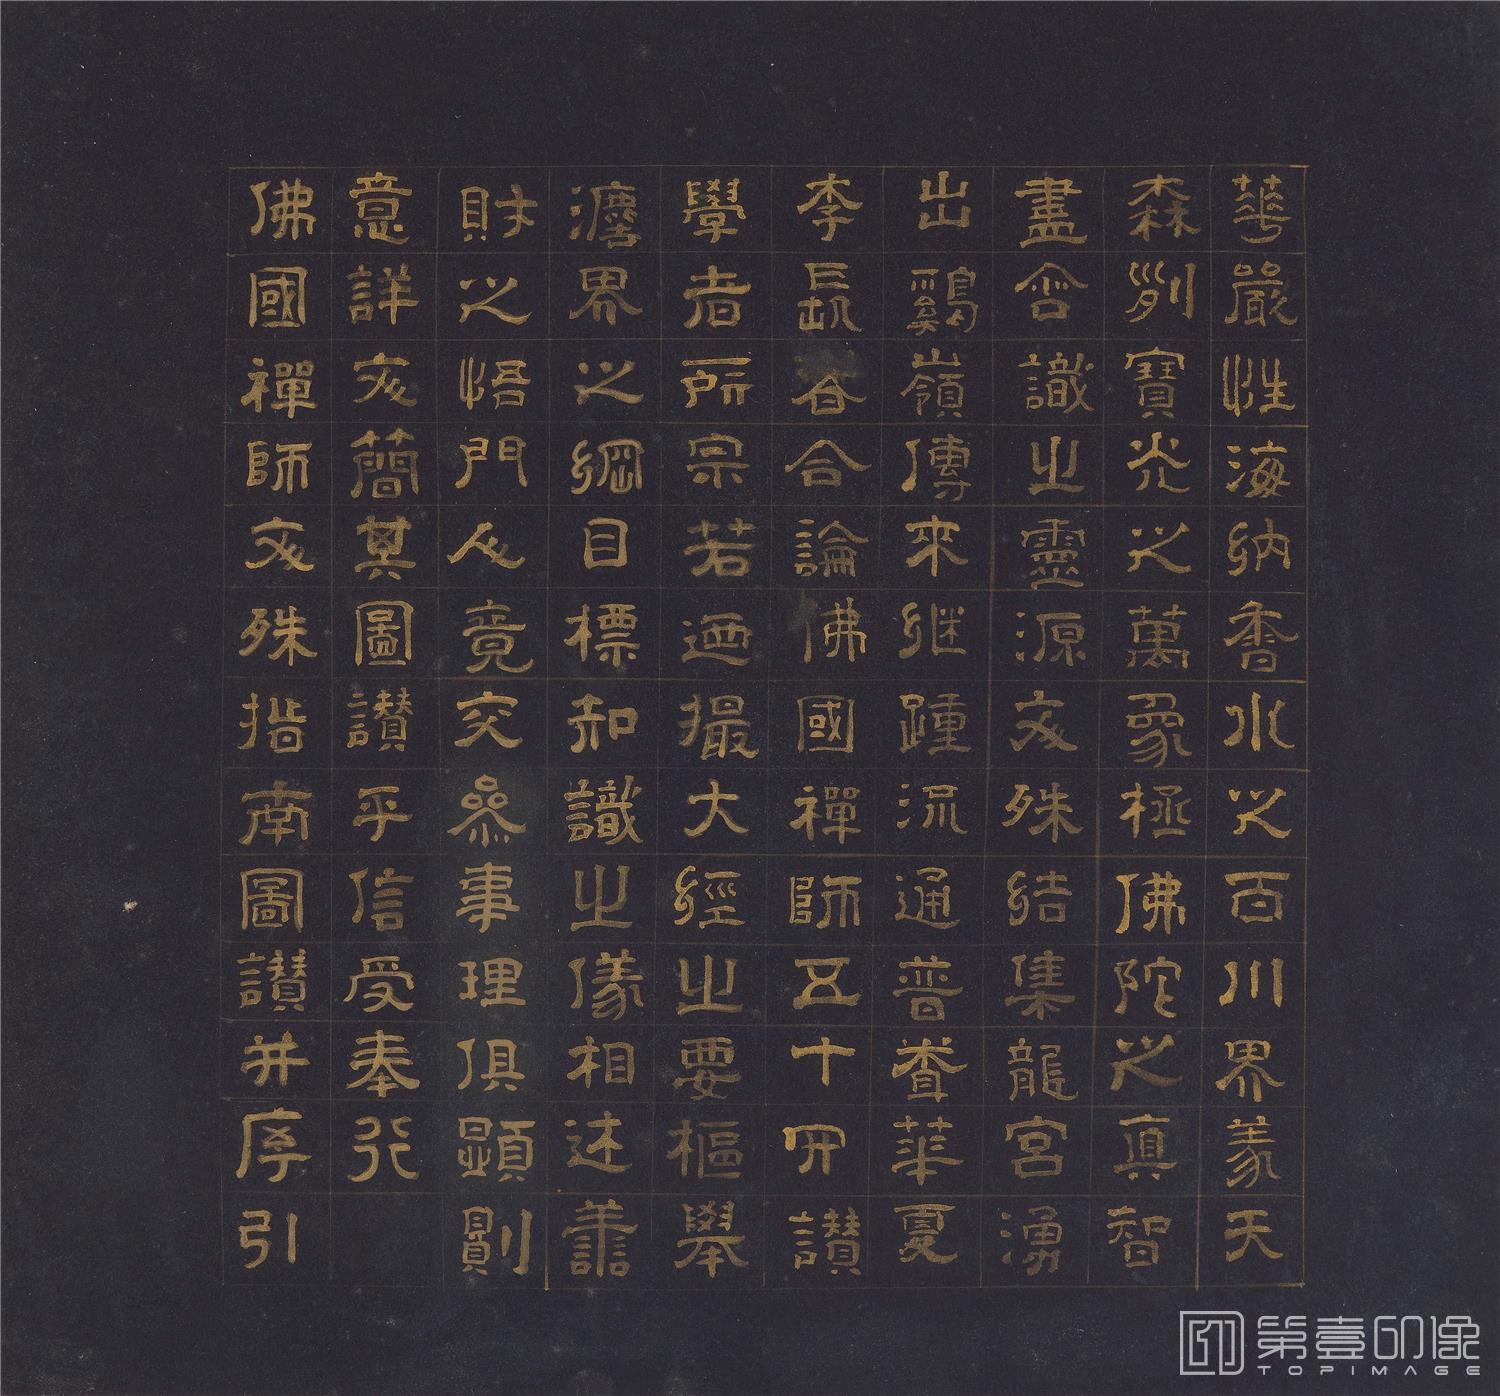 華嚴性海納香水之百川界義天
森列寶光之萬象極佛陀之真智
盡含識之靈源文殊結集龍宮湧
出鷄嶺傳來繼踵流通普資華夏
李長者合論佛國禪師五十四讚
學者所宗若迺撮大經之要樞舉
灋界之綱目標知識之儀相述善
財之悟門人竟交參事理俱顯則
意詳文簡其圖讚乎信受奉行
佛國禪師文殊指南圖讚并序引
第壹印像
TOPIMAGE